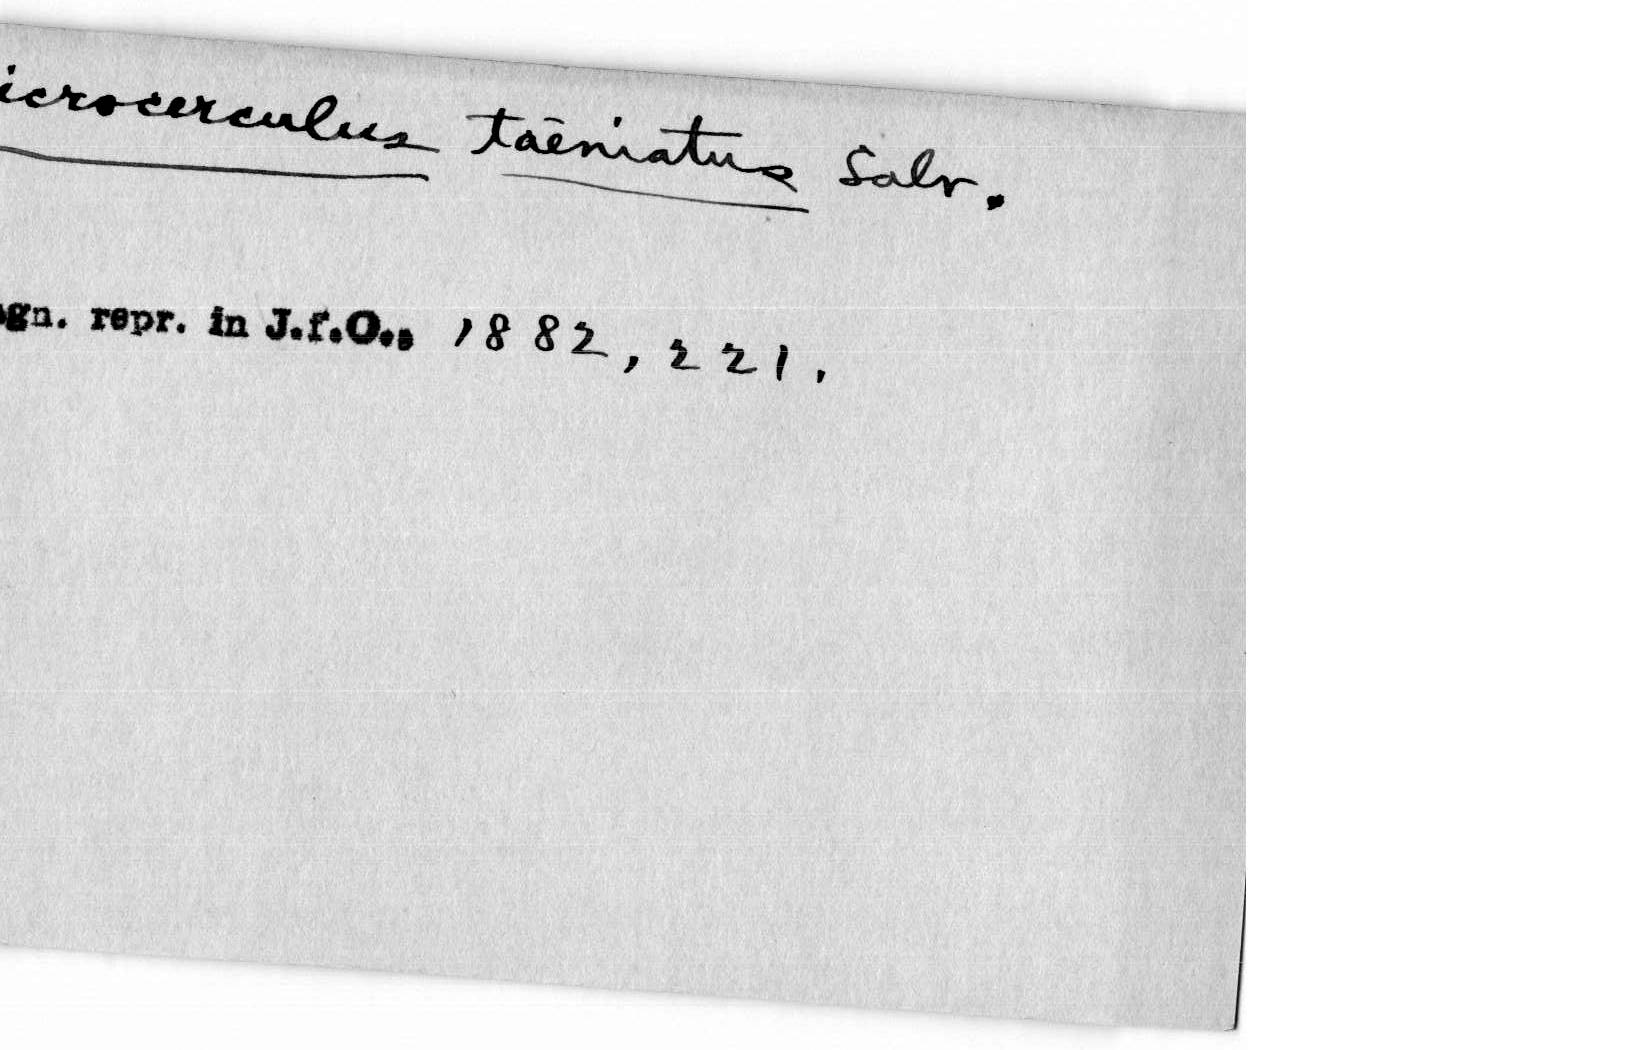 icrocerculus taeniatus Salv.
gn. repr. in J.f.O., 1882, 221.